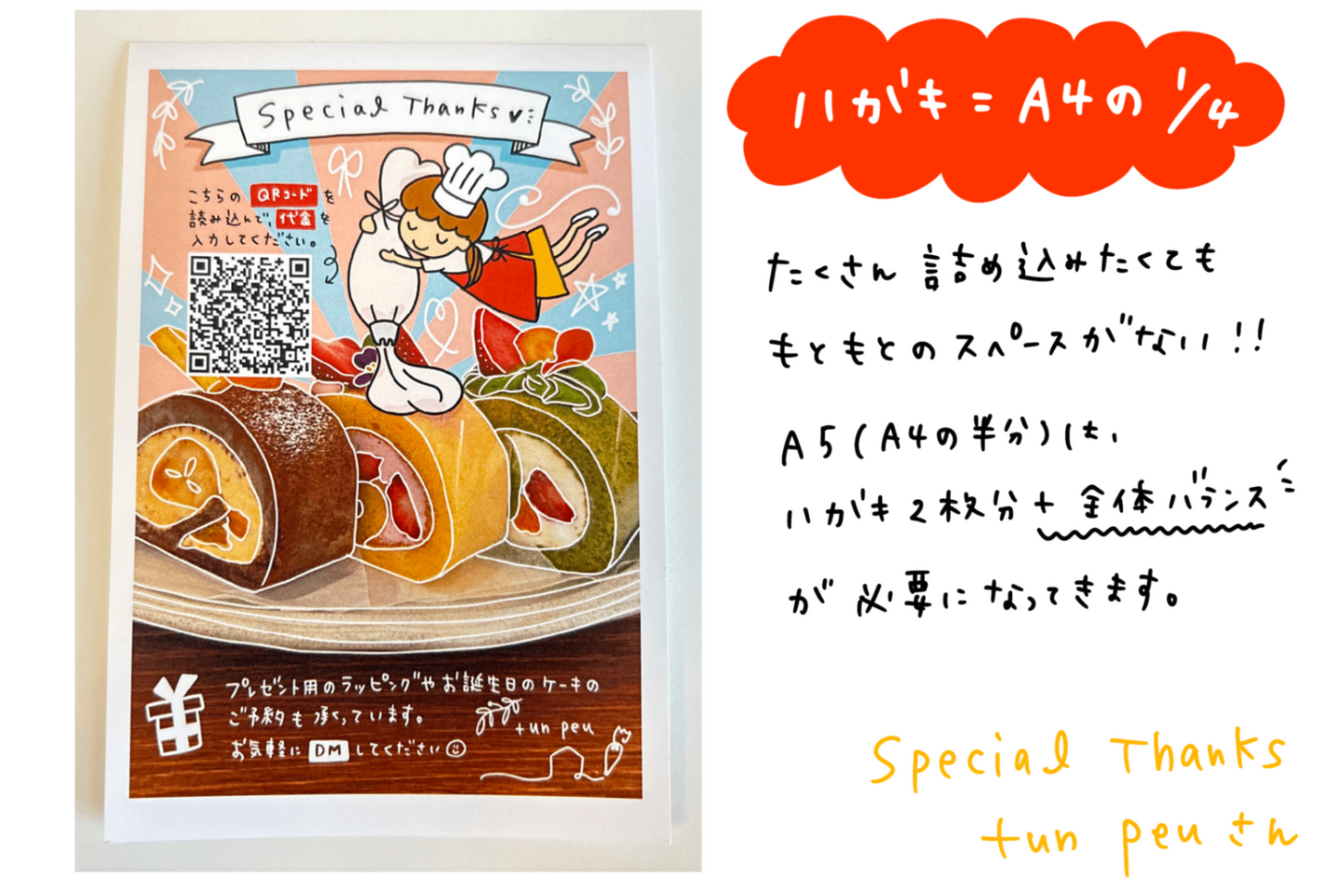 Special Thanks♥
こちらの QRコード を
読み込んで、代金を
入力してください。
プレゼント用のラッピングやお誕生日のケーキの
ご予約も承っています。
お気軽に DM してください☺
+un peu
ハガキ = A4の 1/4
たくさん 詰め込みたくても
もともとのスペースがない!!
A5(A4の半分)は、
ハガキ2枚分+全体バランス
が必要になってきます。
Special Thanks
+un peu さん